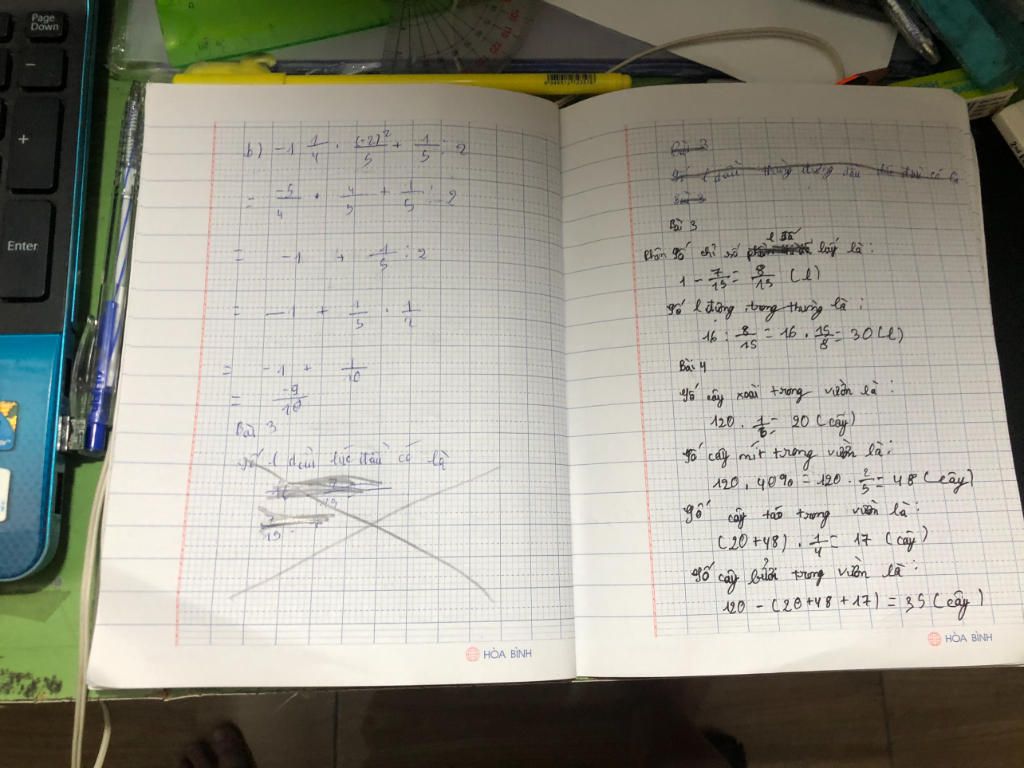 Page Down
+
Enter
b) -1 1/4 . (-2)²/5 + 1/5 : 2
= -5/4 . 4/5 + 1/5 : 2
= -1 + 1/5 : 2
= -1 + 1/5 . 1/2
= -1 + 1/10
= -9/10
Bài 3
Số l dầu lúc đầu có là
HÒA BÌNH
Bài 3
Bài 3
Bài 3
l đã
Phân số chỉ số lấy là :
1 - 7/15 = 8/15 (l)
Số l đựng trong thùng là :
16 : 8/15 = 16 . 15/8 = 30 (l)
Bài 4
Số cây xoài trong vườn là :
120 . 1/6 = 20 (cây)
Số cây mít trong vườn là :
120 . 40% = 120 . 2/5 = 48 (cây)
Số cây táo trong vườn là :
(20+48) . 1/4 = 17 (cây)
Số cây bưởi trong vườn là :
120 - (20+48+17) = 35 (cây)
HÒA BÌNH